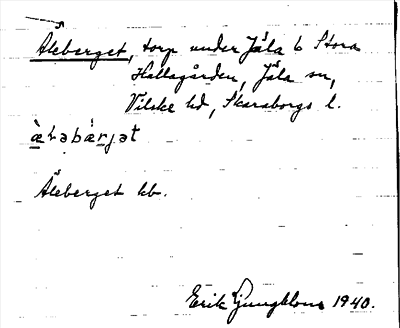 Åleberget, torp under Jäla 6 Stora
Hallagården, Jäla sn,
Vilske hd, Skaraborgs l.
Åleberget kb.
Erik Ljungblom 1940.